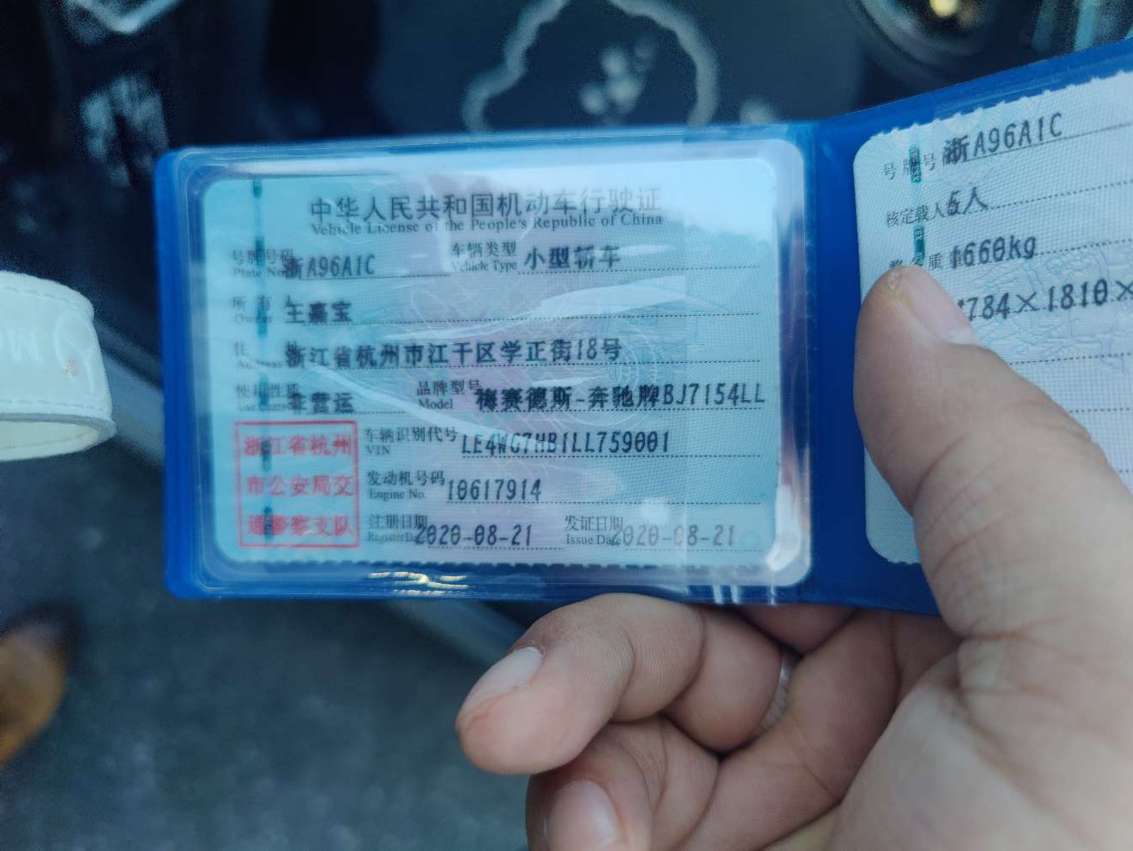 中华人民共和国机动车行驶证
Vehicle License of the People's Republic of China
号牌号码 浙A96A1C 车辆类型 小型轿车
Plate No. Vehicle Type
所有人 王嘉宝
住 浙江省杭州市江干区学正街18号
使用性质 非营运 品牌型号 梅赛德斯-奔驰牌BJ7154LL
Model
浙江省杭州
市公安局交
通警察支队
车辆识别代号 LE4WG7HB1LL759001
VIN
发动机号码 10617914
Engine No.
注册日期 2020-08-21 发证日期 2020-08-21
Register Date Issue Date
号牌号 浙A96A1C
核定载人 5人
质量 1660kg
784×1810×